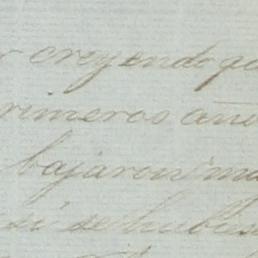 creyendo
rimeros añ
bajaron
si se hubies